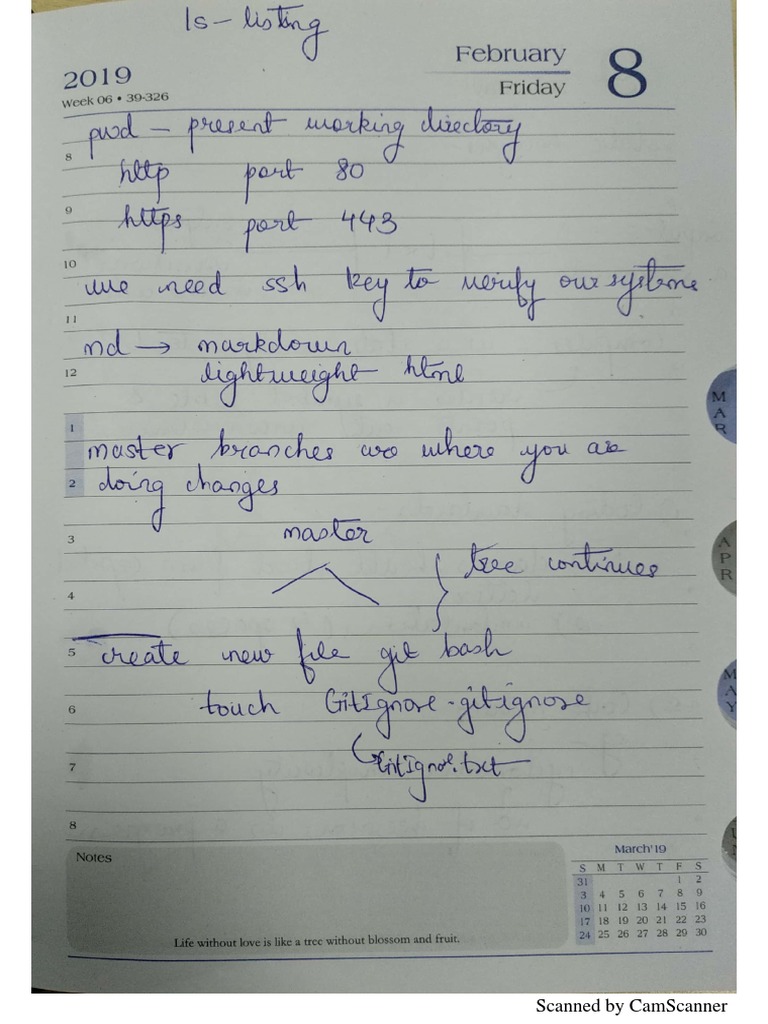 ls - listing
2019
February
8
Week 06 • 39-326
Friday
pwd - present working directory
8
http port 80
9
https port 443
10
we need ssh key to verify our systeme
11
md → markdown
12
lightweight html
1
master branches are where you are
2
doing changes
3
master
4
tree continues
5
create new file git bash
6
touch GitIgnore.gitignore
7
GitIgnore.txt
8
Notes
Life without love is like a tree without blossom and fruit.
March'19
S M T W T F S
31 1 2
3 4 5 6 7 8 9
10 11 12 13 14 15 16
17 18 19 20 21 22 23
24 25 26 27 28 29 30
MAR
APR
MAY
Scanned by CamScanner